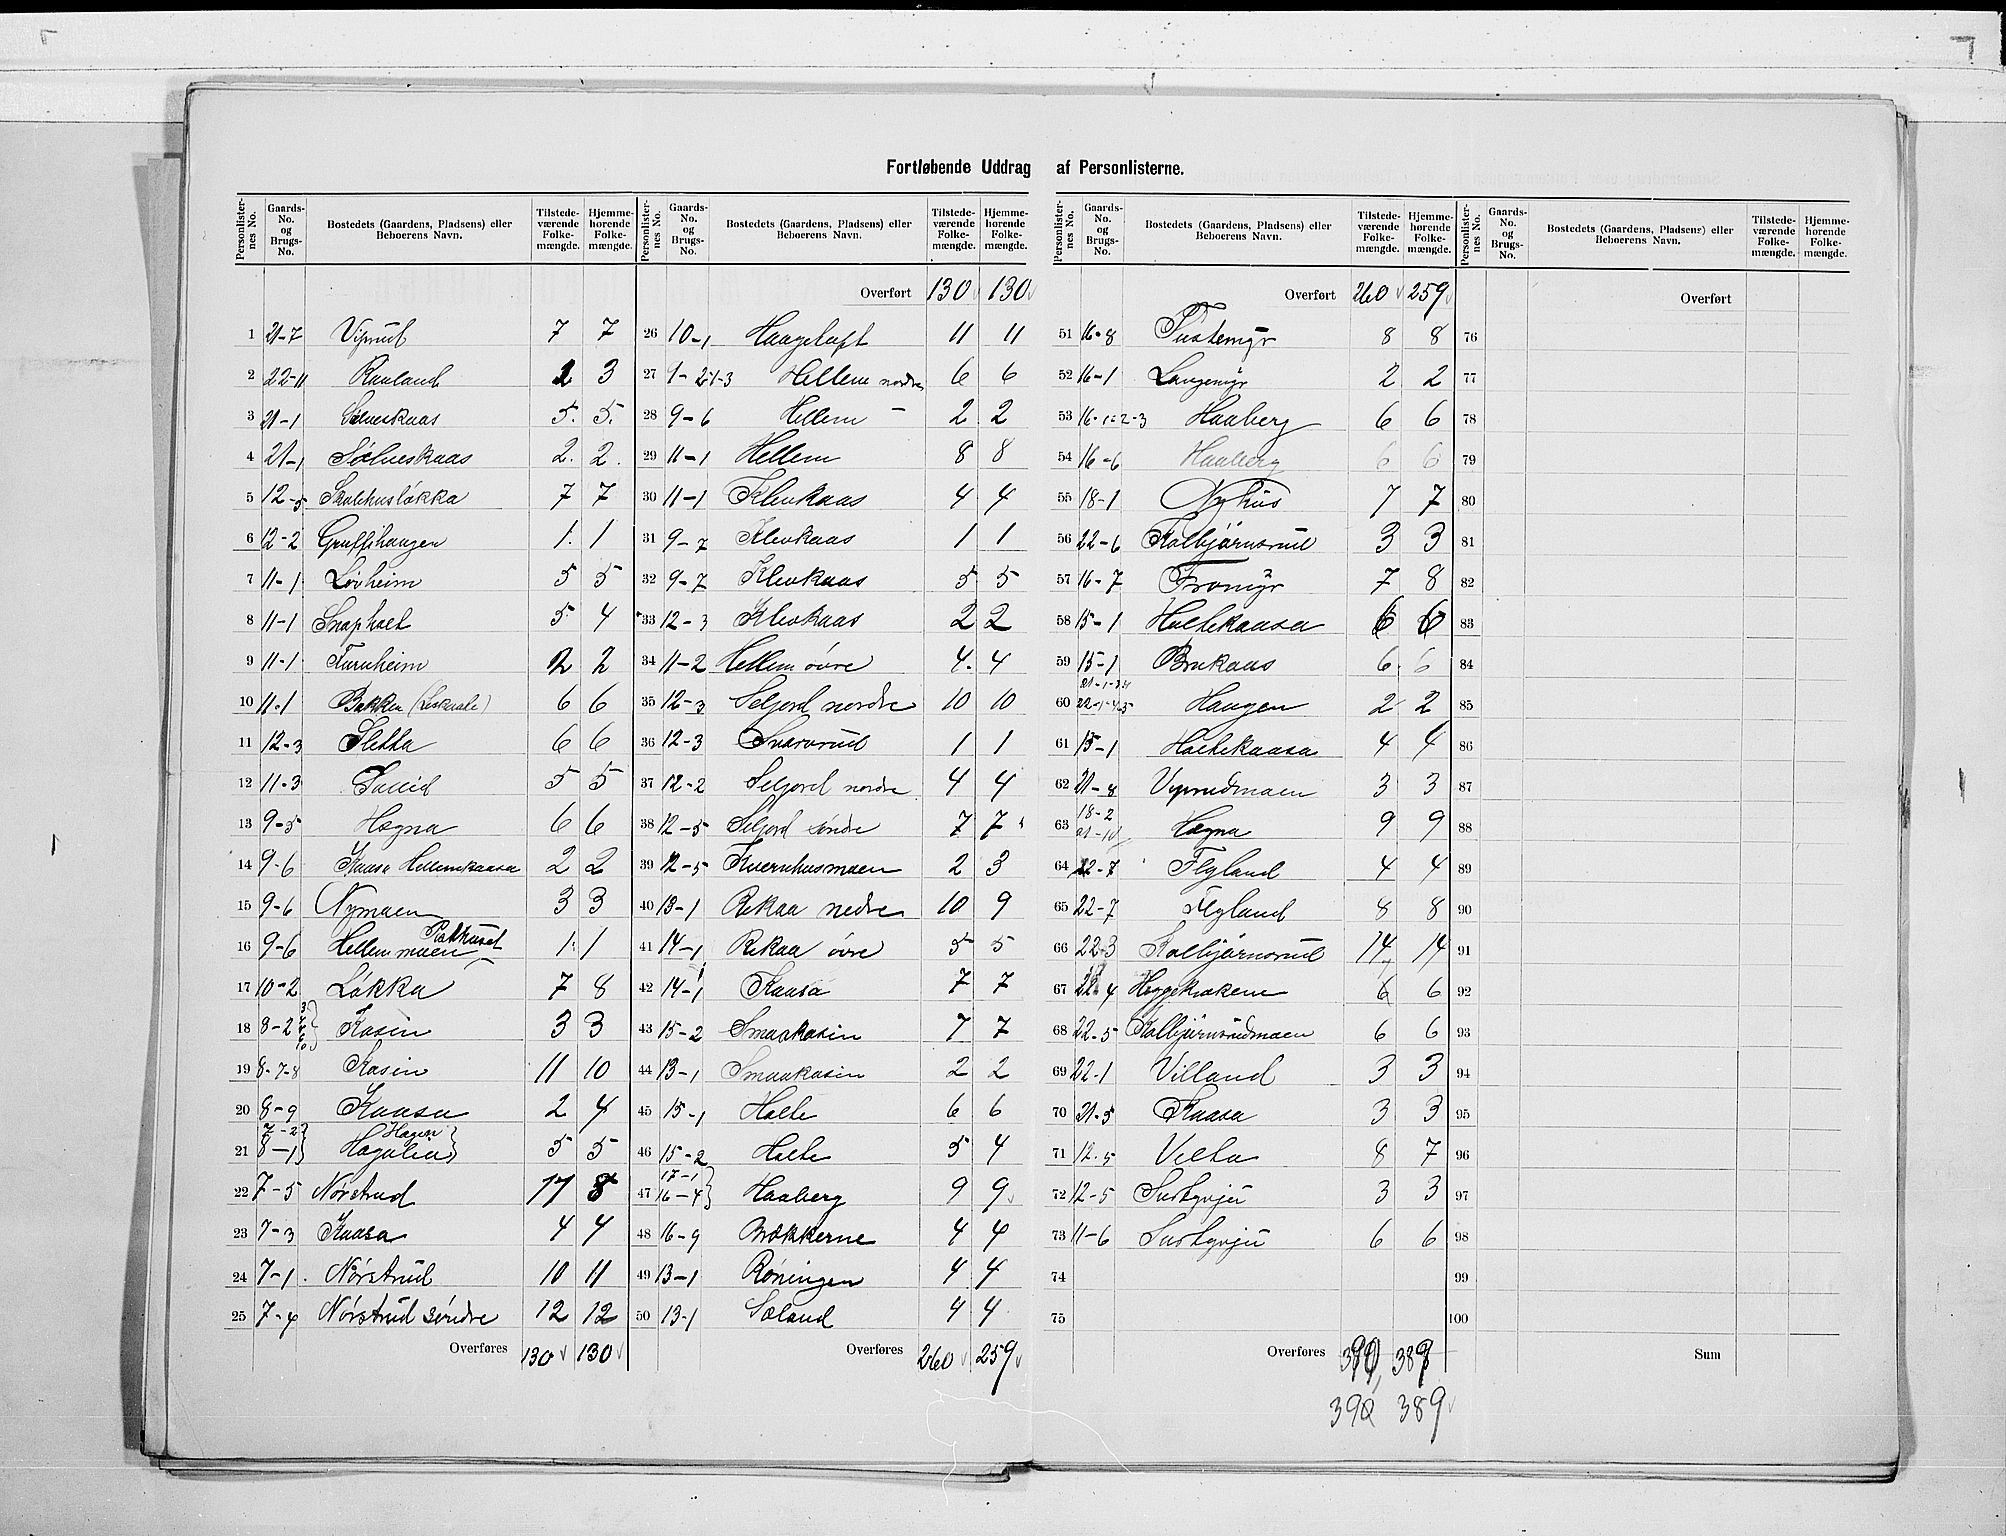 Fortløbende Uddrag af Personlisterne.
Personlister-nes No. | Gaards-No. og Brugs-No. | Bostedets (Gaardens, Pladsens) eller Beboerens Navn. | Tilstede-værende Folke-mængde. | Hjemme-hørende Folke-mængde.
1 21-7 Viprud 7 7
2 22-11 Rauland 2 3
3 21-1 Sølveskaas 5. 5.
4 21-1 Sølveskaas 2. 2.
5 12-5 Skolehusløkka 7 7
6 12-2 1. 1
7 11-1 Løvheim 5 5
8 11-1 Snapholt 5 4
9 11-1 Furuheim 2 2
10 11-1 Bakken 6 6
11 12-3 Sletta 6 6
12 11-3 5 5
13 9-5 Hægna 6 6
14 9-6 Kaasa Hellemkaasa 2 2
15 9-6 Nymoen 3 3
16 9-6 Hellemmoen 1. 1
17 10-2 Løkka 7 8
18 8-2 Kasin 3 3
19 8-7-8 Kasin 11 10
20 8-9 Kaasa 2 4
21 7-2 8-1 Hagen 5 5
22 7-5 Nørstrud 17 8
23 7-3 Kaasa 4 4
24 7-1. Nørstrud 10 11
25 7-4 Nørstrud søndre 12 12
Overføres 130 130
Personlister-nes No. | Gaards-No. og Brugs-No. | Bostedets (Gaardens, Pladsens) eller Beboerens Navn. | Tilstede-værende Folke-mængde. | Hjemme-hørende Folke-mængde.
Overført 130 130
26 10-1 Haugeluft 11 11
27 9-2-1-3 Hellem nordre 6 6
28 9-6 Hellem - 2 2
29 11-1 Hellem 8 8
30 11-1 Klevkaas 4 4
31 9-7 Klevkaas 1 1
32 9-7 Klevkaas 5 5
33 12-3 Klevkaas 2 2
34 11-2 Hellem øvre 4. 4
35 12-3 Seljord nordre 10 10
36 12-3 Svarvrud 1 1
37 12-2 Seljord nordre 4 4
38 12-5 Seljord søndre 7 7
39 12-5 Kvernhusmoen 2 3
40 13-1 Rekaa nedre 10 9
41 14-1 Rekaa øvre 5 5
42 14-1 Kaasa 7 7
43 15-2 Smaakasin 7 7
44 13-1 Smaakasin 2 2
45 15-1 Holte 6 6
46 15-2 Holte 5 4
47 17-1 16-4 Haaberg 9 9
48 16-9 Brekkerne 4 4
49 13-1 Røningen 4 4
50 13-1 Søland 4 4
Overføres 260 259
Personlister-nes No. | Gaards-No. og Brugs-No. | Bostedets (Gaardens, Pladsens) eller Beboerens Navn. | Tilstede-værende Folke-mængde. | Hjemme-hørende Folke-mængde.
Overført 260 259
51 16-8 Tustemyr 8 8
52 16-1 Langemyr 2 2
53 16-1-2-3 Haaberg 6 6
54 16-6 Haaberg 6 6
55 18-1 Nyhus 7 7
56 22-6 Kolbjørnsrud 3 3
57 16-7 Tromyr 7 8
58 15-1 Holtekaasa 6 6
59 15-1 Brukaas 6. 6
60 Haugen 2 2
61 15-1 Holtekaasa 4 4
62 21-8 Viprudmoen 3 3
63 18-2 21-10 Hægna 9 9
64 22-7 Flyland 4 4
65 22-7 Flyland 8 8
66 22-3 Kolbjørnsrud 14 14
67 22-4 Heggekroken 6 6
68 22-5 Kolbjørnsrudmoen 6 6
69 22-1 Villand 3 3
70 21-5 Kaasa 3 3
71 12-5 Velta 8 7
72 12-5 3 3
73 11-6 6 6
74
75
Overføres 390, 389
390 389
Personlister-nes No. | Gaards-No. og Brugs-No. | Bostedets (Gaardens, Pladsens) eller Beboerens Navn. | Tilstede-værende Folke-mængde. | Hjemme-hørende Folke-mængde.
Overført
76
77
78
79
80
81
82
83
84
85
86
87
88
89
90
91
92
93
94
95
96
97
98
99
100
Sum